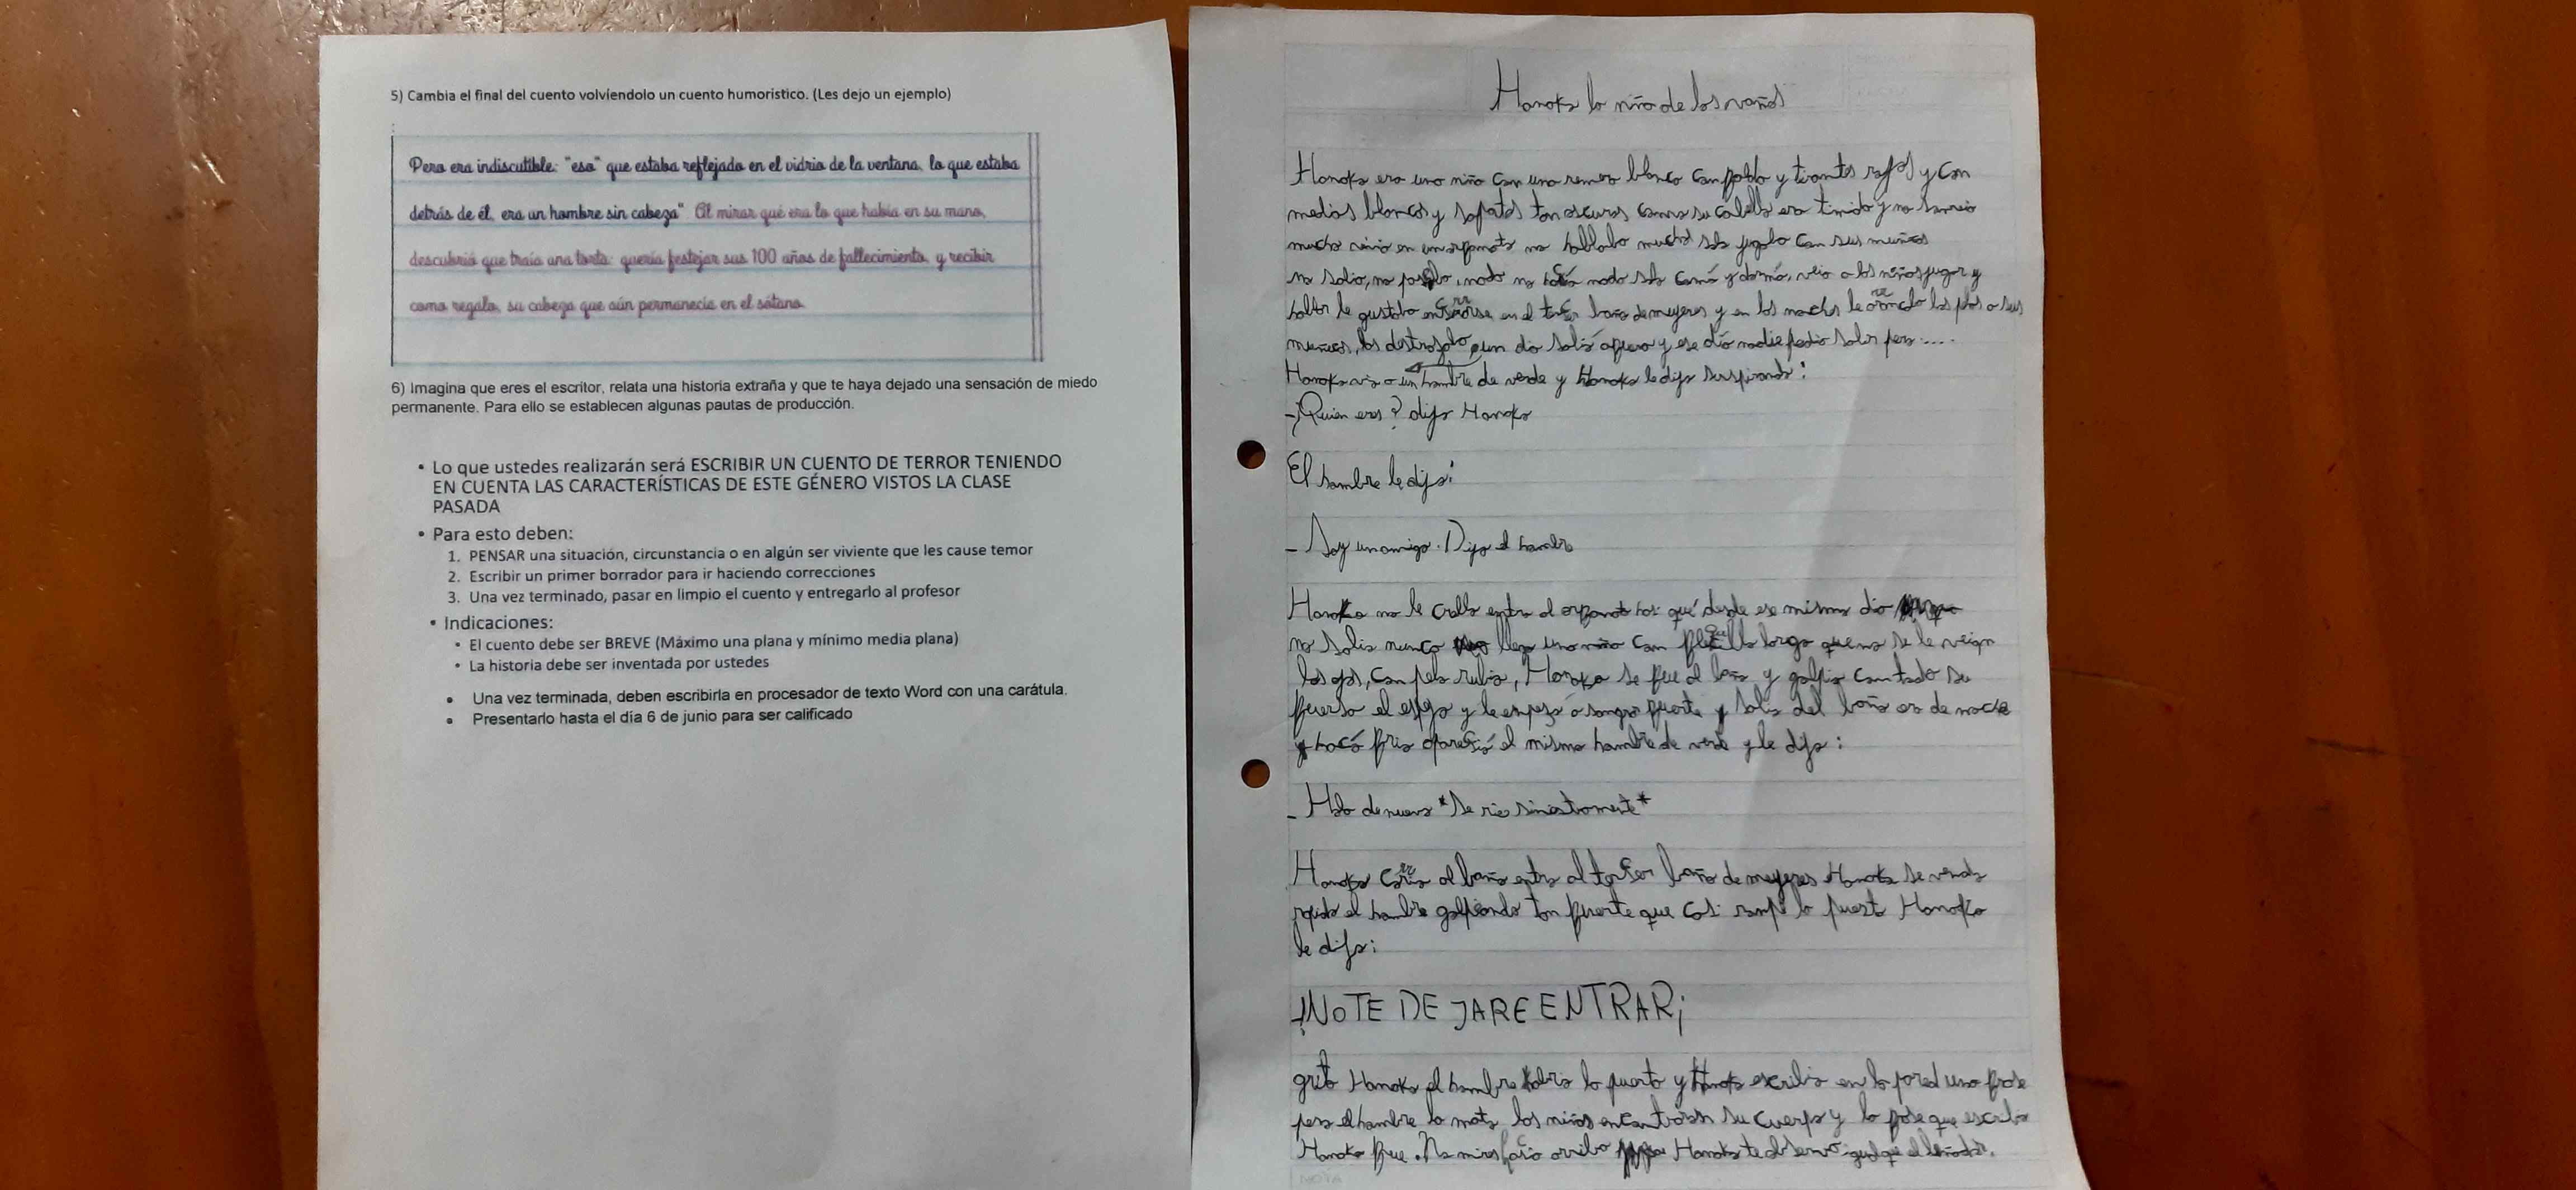 5) Cambia el final del cuento volviendolo un cuento humoristico. (Les dejo un ejemplo)
Pero era indiscutible: "eso" que estaba reflejado en el vidrio de la ventana, lo que estaba
detrás de él, era un hombre sin cabeza". Al mirar qué era lo que había en su mano,
descubrió que traía una torta: quería festejar sus 100 años de fallecimiento, y recibir
como regalo, su cabeza que aún permanecía en el sótano.
6) Imagina que eres el escritor, relata una historia extraña y que te haya dejado una sensación de miedo
permanente. Para ello se establecen algunas pautas de producción.
• Lo que ustedes realizarán será ESCRIBIR UN CUENTO DE TERROR TENIENDO
EN CUENTA LAS CARACTERÍSTICAS DE ESTE GÉNERO VISTOS LA CLASE
PASADA
• Para esto deben:
1. PENSAR una situación, circunstancia o en algún ser viviente que les cause temor
2. Escribir un primer borrador para ir haciendo correcciones
3. Una vez terminado, pasar en limpio el cuento y entregarlo al profesor
• Indicaciones:
• El cuento debe ser BREVE (Máximo una plana y mínimo media plana)
• La historia debe ser inventada por ustedes
• Una vez terminada, deben escribirla en procesador de texto Word con una carátula.
• Presentarlo hasta el día 6 de junio para ser calificado
Hanoko la niña de los vaños
Hanoko era una niña con una remera blanca con polda y tirantes rojas y con
medias blancas y sapatos tan oscuros como su cabello era timida y no sonreia
mucho vivia en un orfanato no hablaba mucho solo jugaba con sus muñecos
no salia, no nada no hacía nada solo comá y dormá, veia a los niños jugar y
hablar le gustaba encerrarse en el tercer baño de mujeres y en las noches le arrancaba los a sus
muñecos, los destrosaba un día salió afuera y ese día nadie podia salir pero....
Hanoko vio a un hombre de verde y Hanoko le dijo suspirando:
-¿Quien eres? dijo Hanoko
El hombre le dijo:
- Soy un amigo. Dijo el hombre
Hanoko no le entro al orfanato así qué desde ese mismo dia
no salio nunca llego una niña con flequillo largo que no se le veian
los ojos, con pelo rubio, Hanoko se fue al baño y golpio con toda su
fuersa el espejo y le empezó a sangra fuerte y salio del baño era de noche
y hacá frio aparesió el mismo hombre de verde y le dijo:
- Hola de nuevo *Se rie siniestramente*
Hanoko corrio al baño entro al tercer baño de mujeres Hanoko se
rapido el hombre golpeando tan fuerte que casi rompe la puerta Hanoko
le dijo:
-¡NO TE DE JARE ENTRAR¡
grito Hanoko el hombre abrio la puerta y Hanoko escribio en la pared una frase
pero el hombre la mato, los niños encontraron su cuerpo y la frase que escribio
Hanoko fue. No mires hacia arriba Hanoko te observa igual que el leñador.